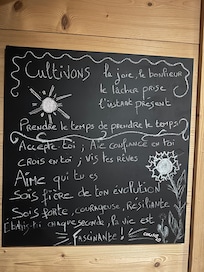 Cultivons la joie, le bonheur
le lâcher prise
l'instant présent
Prendre le temps de prendre le temps!
Accepte-toi ; Aie confiance en toi
crois en toi ; vis tes rêves
Aime qui tu es
Sois fière de ton évolution
Sois forte, courageuse, Résiliante
Eblouis-toi chaque seconde, la vie est
fascinante!